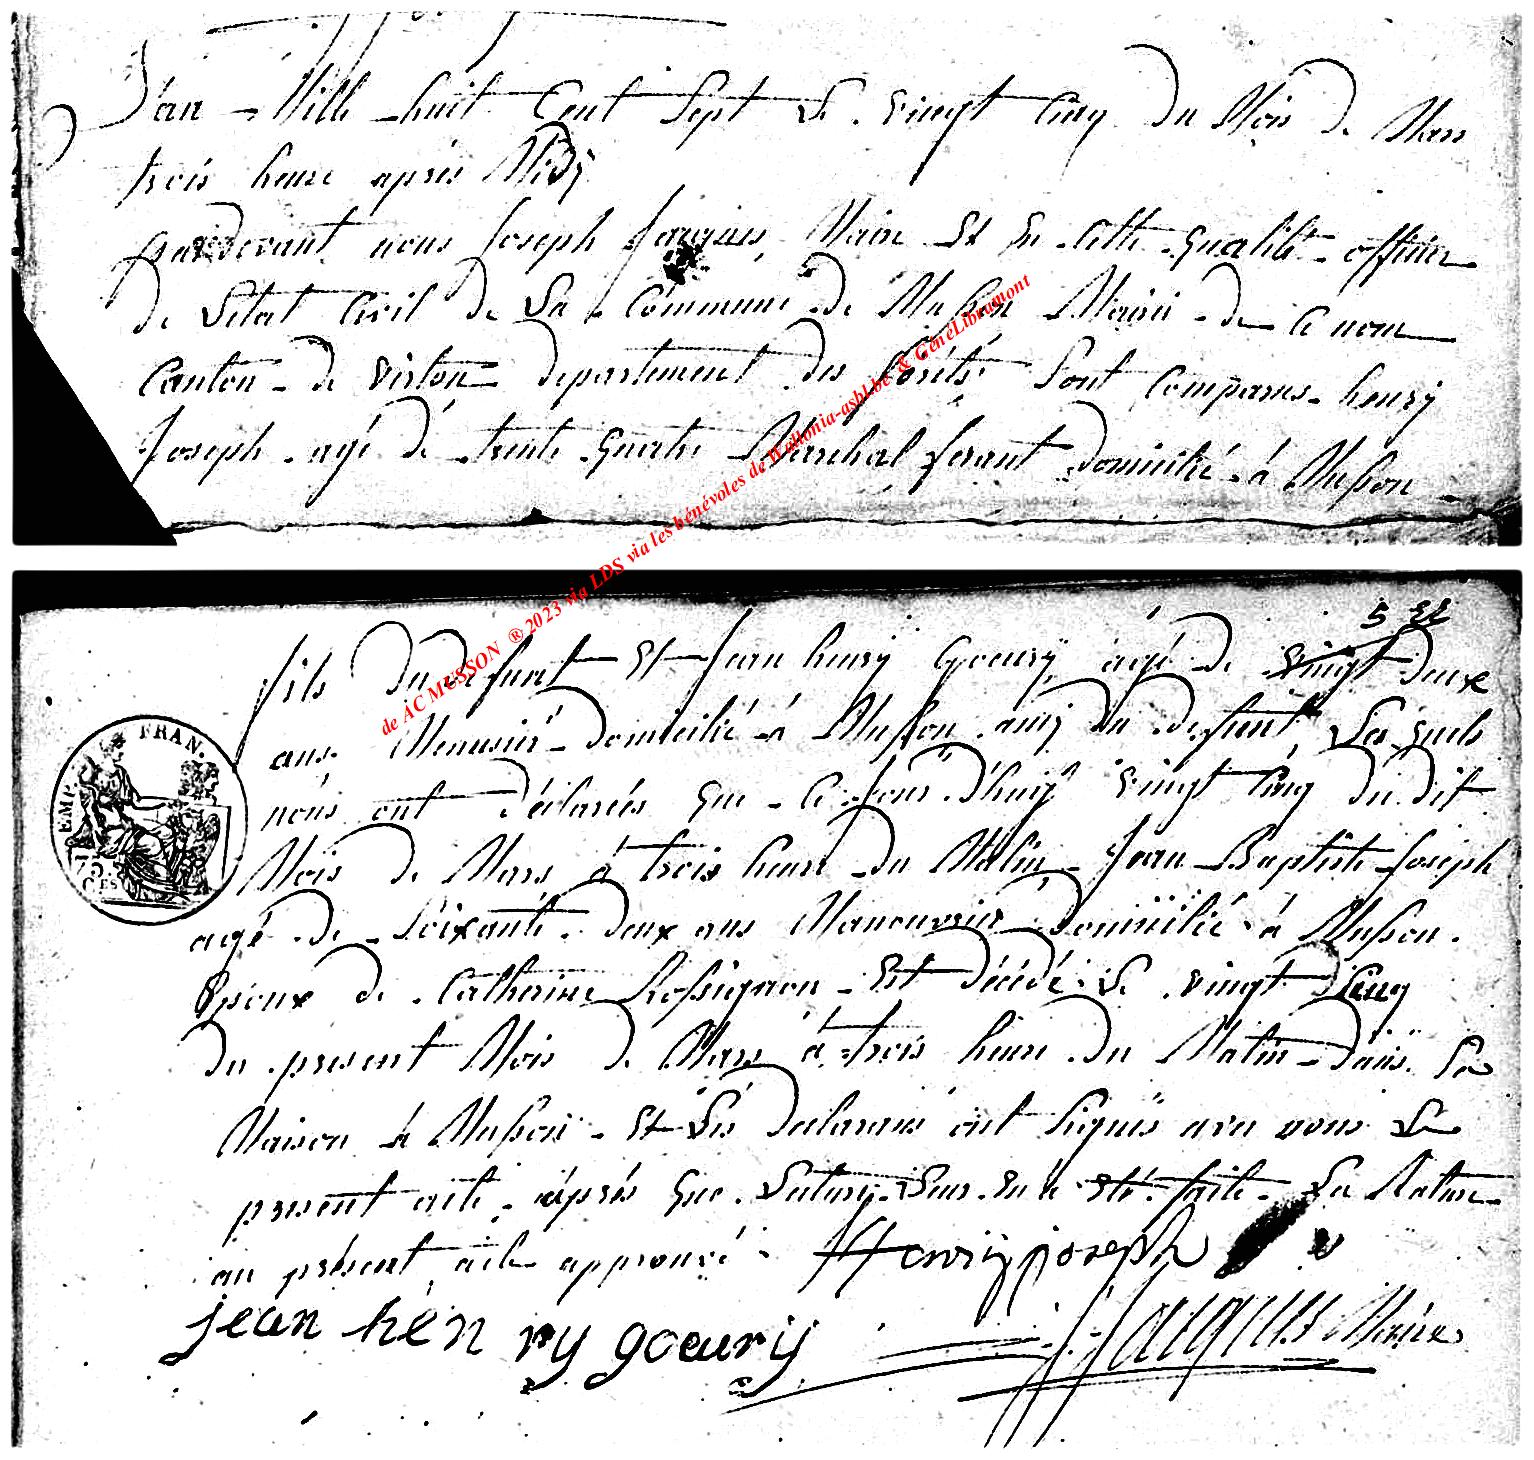 L'an Mille huit Cent Sept Le vingt Cinq Du Mois De Mars
trois heure après Midÿ
Pardevant nous Joseph Jacques Maire Et En Cette Qualité officier
De Letat Civil De La Commune De Musson Mairie De Ce nom
Canton De virton Departement Des forêts Sont Comparus henrÿ
Joseph agé De trente Quatre Marchal ferant Domicilié à Musson
5 22
fils Du Defunt Et Jean henrÿ Goeurÿ agé De vingt Deux
ans Menusier Domicilié à Musson amÿ Du Defunt Les quels
nous ont Déclarés Que Ce Jour D'huÿ vingt Cinq Du Dit
Mois De Mars à trois heure Du Matin Jean Baptiste Joseph
agé De Soixante Deux ans Manouvrier Domicilié à Musson
Epoux De Catherine Rossignon Est Décédé Le vingt Cinq
Du present Mois De Mars à trois heure Du Matin Dans Sa
Maison à Musson Et Les Declarans ont Signés avec nous Le
present acte après Que Lecture Leur En a Eté faite La Rature
au présent acte approuvé Henrÿ joseph
jean hen ry goeurij
J Jacques Maire
EMP. FRAN.
75 CES
de AC MUSSON ® 2023 via LDS via les bénévoles de Wallonia-asbl.be & GénéLibramont